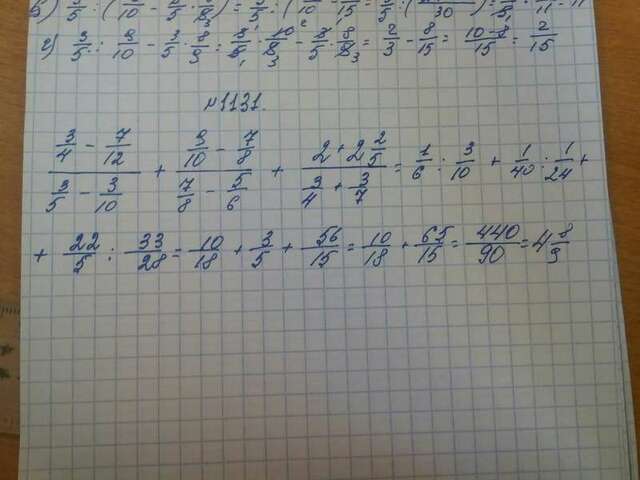 г) 3/5 : 9/10 - 3/5 · 8/9 = 3/5 · 10/9 - 3/5 · 8/9 = 2/3 - 8/15 = (10-8)/15 = 2/15
№1131.
(3/4 - 7/12)/(3/5 - 3/10) + (9/10 - 7/8)/(7/8 - 5/6) + (2 + 2 2/5)/(3/4 + 3/7) = 1/6 : 3/10 + 1/40 : 1/24 +
+ 22/5 : 33/28 = 10/18 + 3/5 + 56/15 = 10/18 + 65/15 = 440/90 = 4 8/9